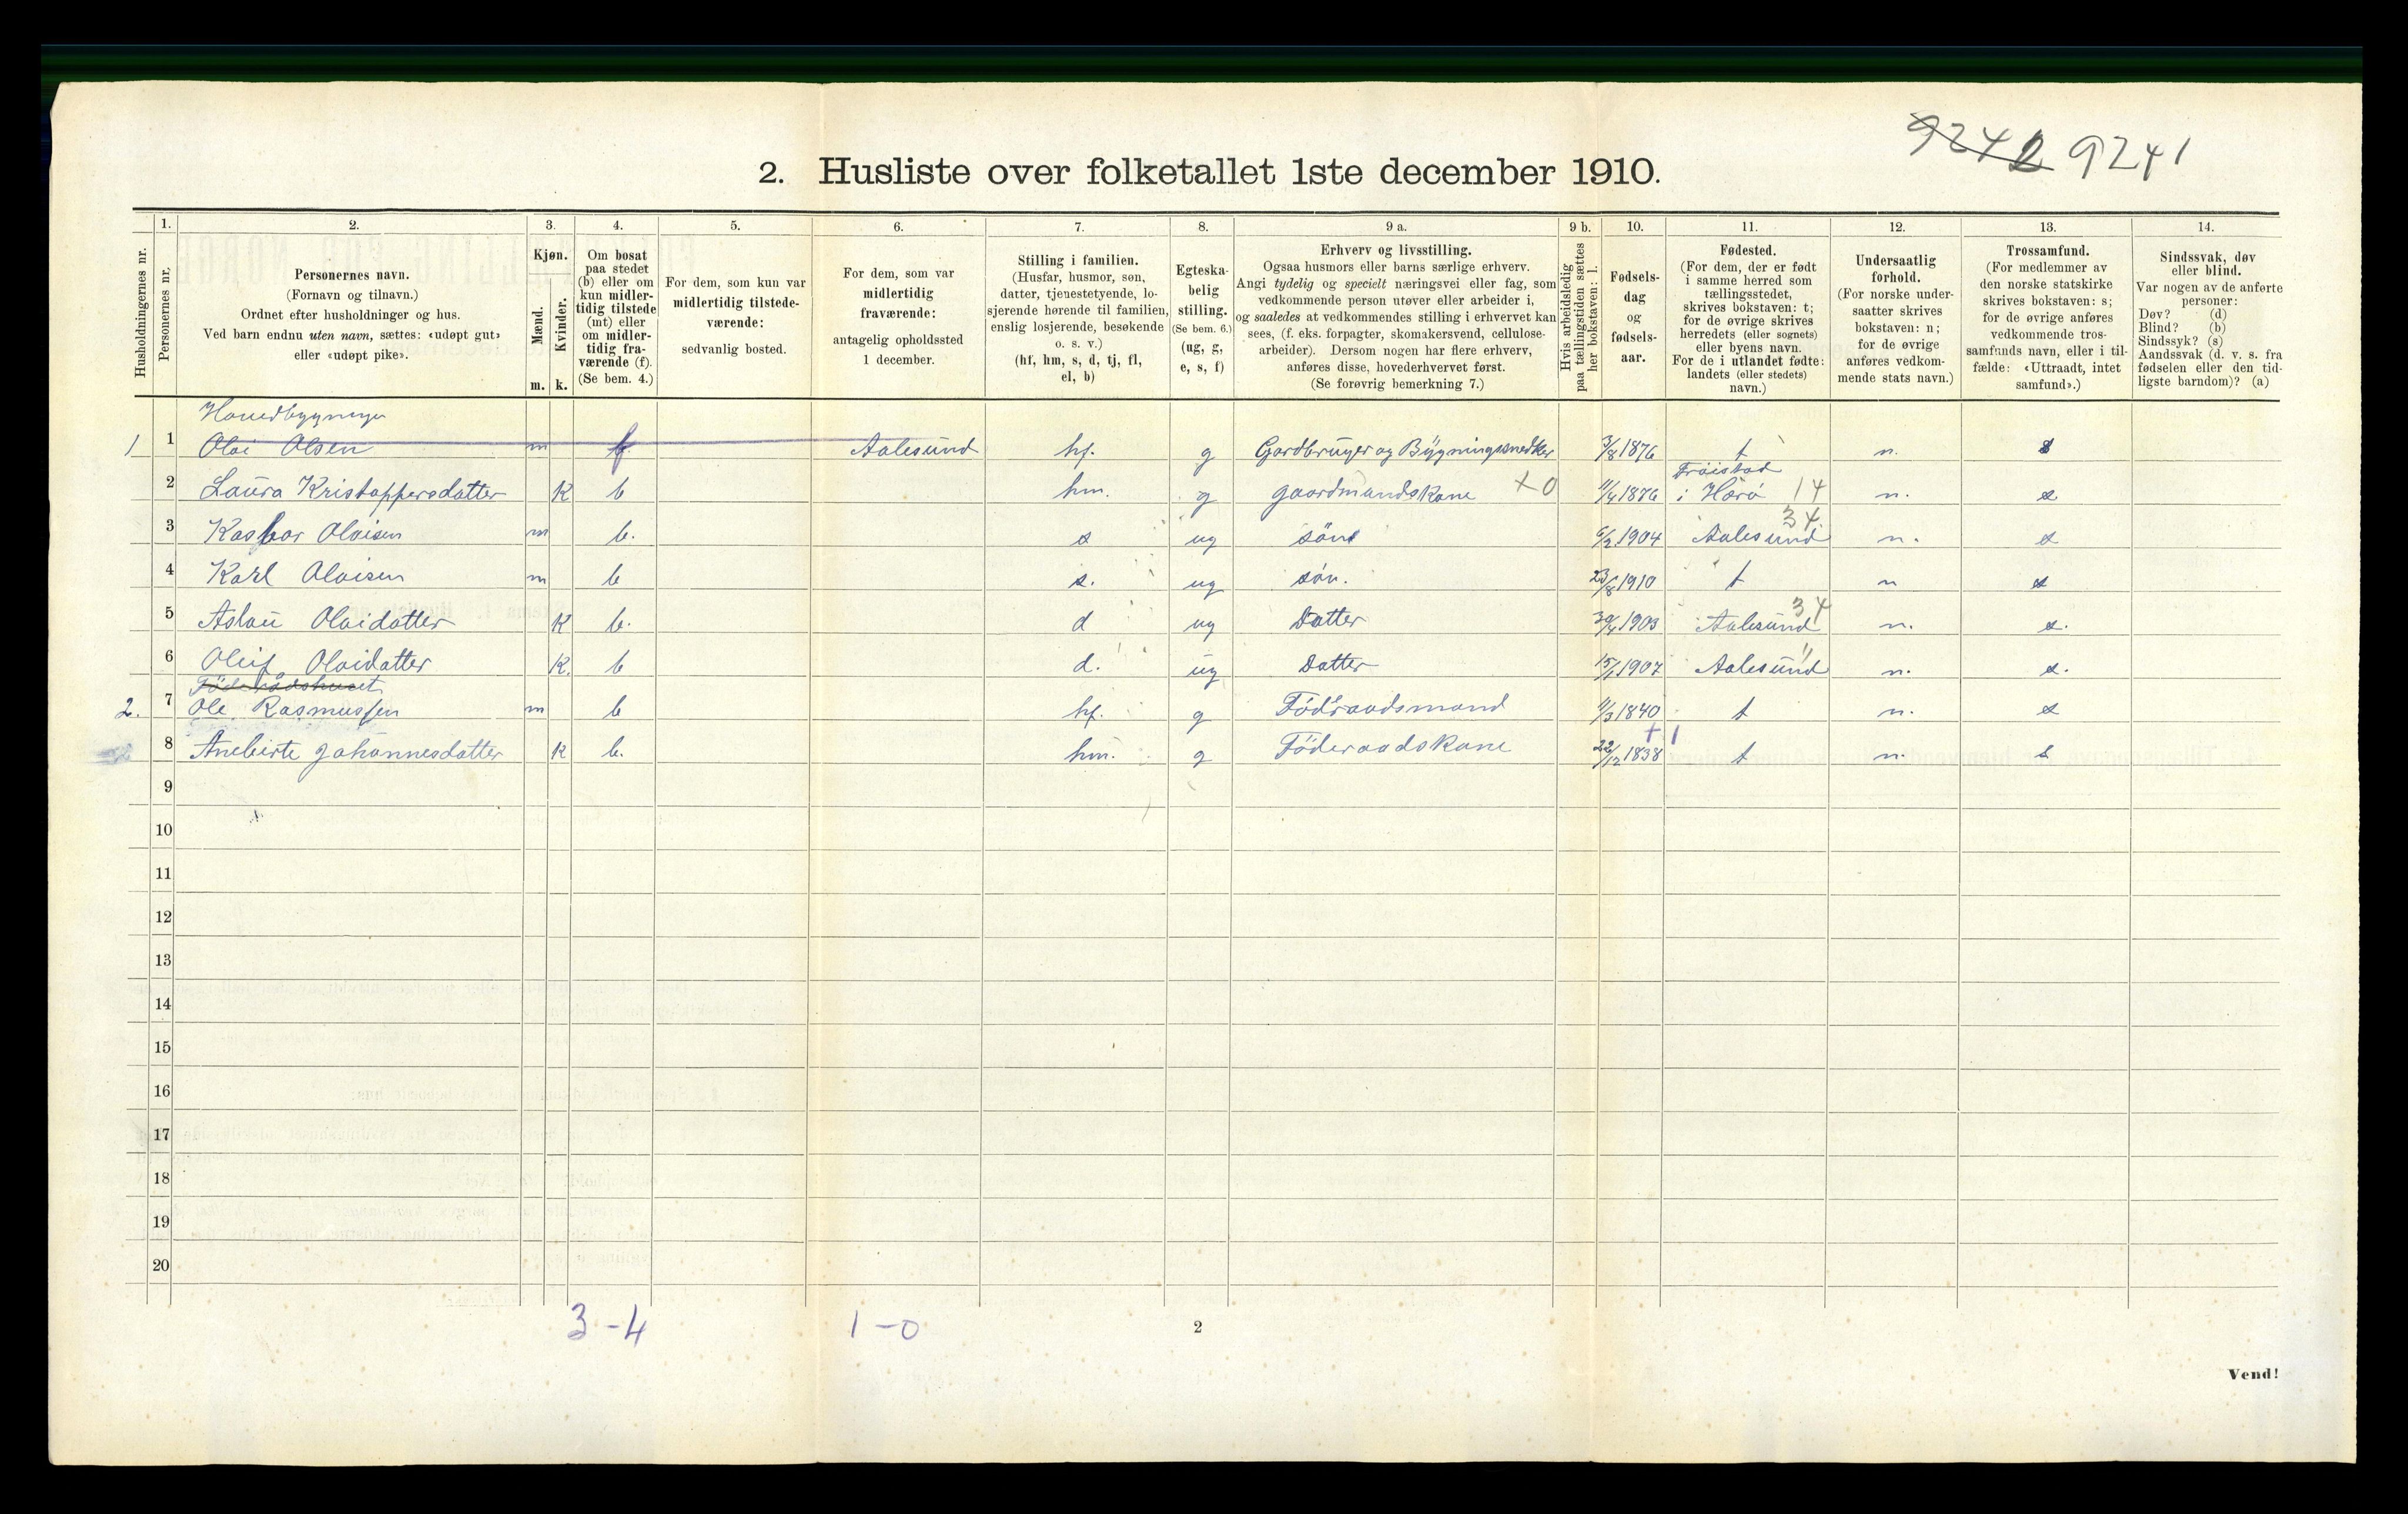 9242 9241
2. Husliste over folketallet 1ste december 1910.
Husholdningernes nr.
1.
Personernes nr.
2.
Personernes navn.
(Fornavn og tilnavn.)
Ordnet efter husholdninger og hus.
Ved barn endnu uten navn, sættes: «udøpt gut»
eller «udøpt pike».
3.
Kjøn.
Mænd.
Kvinder.
m. k.
4.
Om bosat
paa stedet
(b) eller om
kun midler-
tidig tilstede
(mt) eller
om midler-
tidig fra-
værende (f).
(Se bem. 4.)
5.
For dem, som kun var
midlertidig tilstede-
værende:
sedvanlig bosted.
6.
For dem, som var
midlertidig
fraværende:
antagelig opholdssted
1 december.
7.
Stilling i familien.
(Husfar, husmor, søn,
datter, tjenestetyende, lo-
sjerende hørende til familien,
enslig losjerende, besøkende
o. s. v.)
(hf, hm, s, d, tj, fl,
el, b)
8.
Egteska-
belig
stilling.
(Se bem. 6.)
(ug, g,
e, s, f)
9 a.
Erhverv og livsstilling.
Ogsaa husmors eller barns særlige erhverv.
Angi tydelig og specielt næringsvei eller fag, som
vedkommende person utøver eller arbeider i,
og saaledes at vedkommendes stilling i erhvervet kan
sees, (f. eks. forpagter, skomakersvend, cellulose-
arbeider). Dersom nogen har flere erhverv,
anføres disse, hovederhvervet først.
(Se forøvrig bemerkning 7.)
9 b.
Hvis arbeidsledig
paa tællingstiden sættes
her bokstaven: l.
10.
Fødsels-
dag
og
fødsels-
aar.
11.
Fødested.
(For dem, der er født
i samme herred som
tællingsstedet,
skrives bokstaven: t;
for de øvrige skrives
herredets (eller sognets)
eller byens navn.
For de i utlandet fødte:
landets (eller stedets)
navn.)
12.
Undersaatlig
forhold.
(For norske under-
saatter skrives
bokstaven: n;
for de øvrige
anføres vedkom-
mende stats navn.)
13.
Trossamfund.
(For medlemmer av
den norske statskirke
skrives bokstaven: s;
for de øvrige anføres
vedkommende tros-
samfunds navn, eller i til-
fælde: «Uttraadt, intet
samfund».)
14.
Sindssvak, døv
eller blind.
Var nogen av de anførte
personer:
Døv? (d)
Blind? (b)
Sindssyk? (s)
Aandssvak (d. v. s. fra
fødselen eller den tid-
ligste barndom)? (a)
1 1 Olai Olsen m f Aalesund hf. g Gardbruger og Bygningssnedker 3/8 1876 t n. s
2 Laura Kristoppersdatter K b hm. g gaardmandskone +0 11/4 1876 Frøistad i Hørø 14 n. s
3 Kasbar Olaisen m b. s ug sön 6/2 1904 Aalesund 34 n. s
4 Karl Olaisen m b s. ug søn. 23/8 1910 t n s
5 Aslau Olaidatter K b. d ug Datter 30/4 1903 Aalesund 34 n. s.
6 Oleif Olaidatter K. b d. ug Datter 15/1 1907 Aalesund " n. s.
Föderådshuset
2. 7 Ole Rasmussen m b hf. g Födraadsmand 11/3 1840 t n. s
8 Aneberte Johannesdatter K b. hm. g Föderaadskone 22/12 1838 +1 t n. s
9
10
11
12
13
14
15
16
17
18
19
20
3-4 1-0
2
Vend!